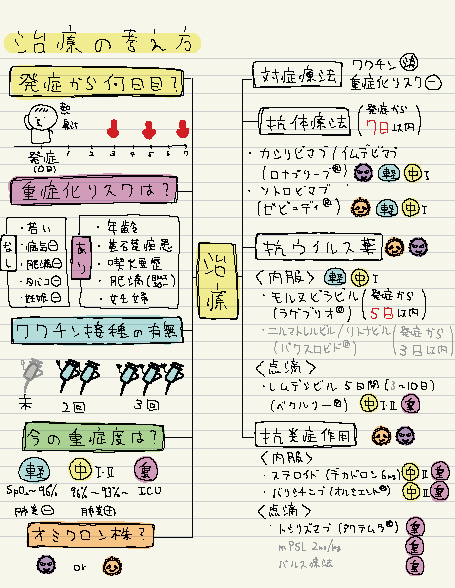 治療の考え方
発症から何日目?
熱
発症
(0日)
1 2 3 4 5 6 7
重症化リスクは?
なし
・若い
・病気⊖
・肥満⊖
・タバコ⊖
・妊娠⊖
あり
・年齢
・基礎疾患
・喫煙歴
・肥満
ワクチン接種の有無
未 2回 3回
今の重症度は?
軽 中 I・II 重
SpO₂〜96% 96%〜93%〜 ICU
肺炎⊖ 肺炎⊕
オミクロン株?
or
治療
対症療法
ワクチン 済
重症化リスク⊖
抗体療法
(発症から
7日以内)
・カシリビマブ/イムデビマブ
(ロナプリーブ®) 軽 中 I
・ソトロビマブ
(ゼビュディ®) 軽 中 I
抗ウイルス薬
<内服> 軽 中 I
・モルヌピラビル
(ラゲブリオ®)
(発症から
5日以内)
・ニルマトレルビル/リトナビル
(パクスロビド®)
(発症から
3日以内)
<点滴>
・レムデシビル 5日間 (3〜10日)
(ベクルリー®) 中 I・II 重
抗炎症作用
<内服>
・ステロイド (デカドロン 6mg) 中 II 重
・バリシチニブ (オルミエント®) 中 II 重
<点滴>
・トシリズマブ (アクテムラ®) 重
mPSL 2mg/kg 重
パルス療法 重